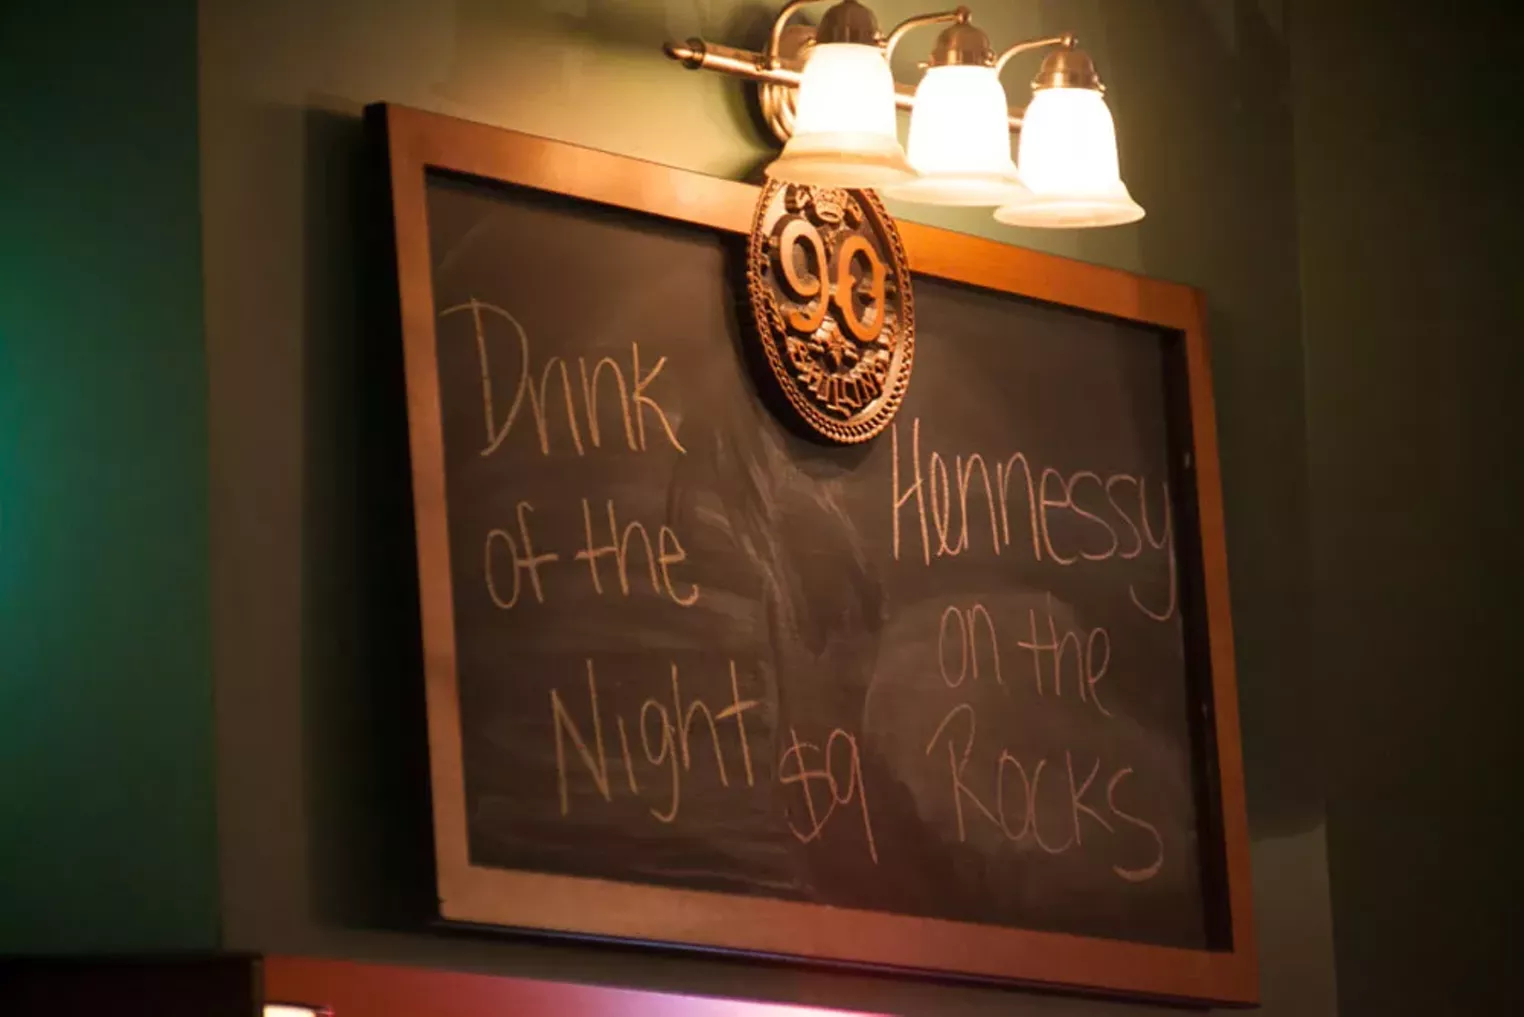 90
Drink
of the
Night
$9
Hennessy
on the
Rocks